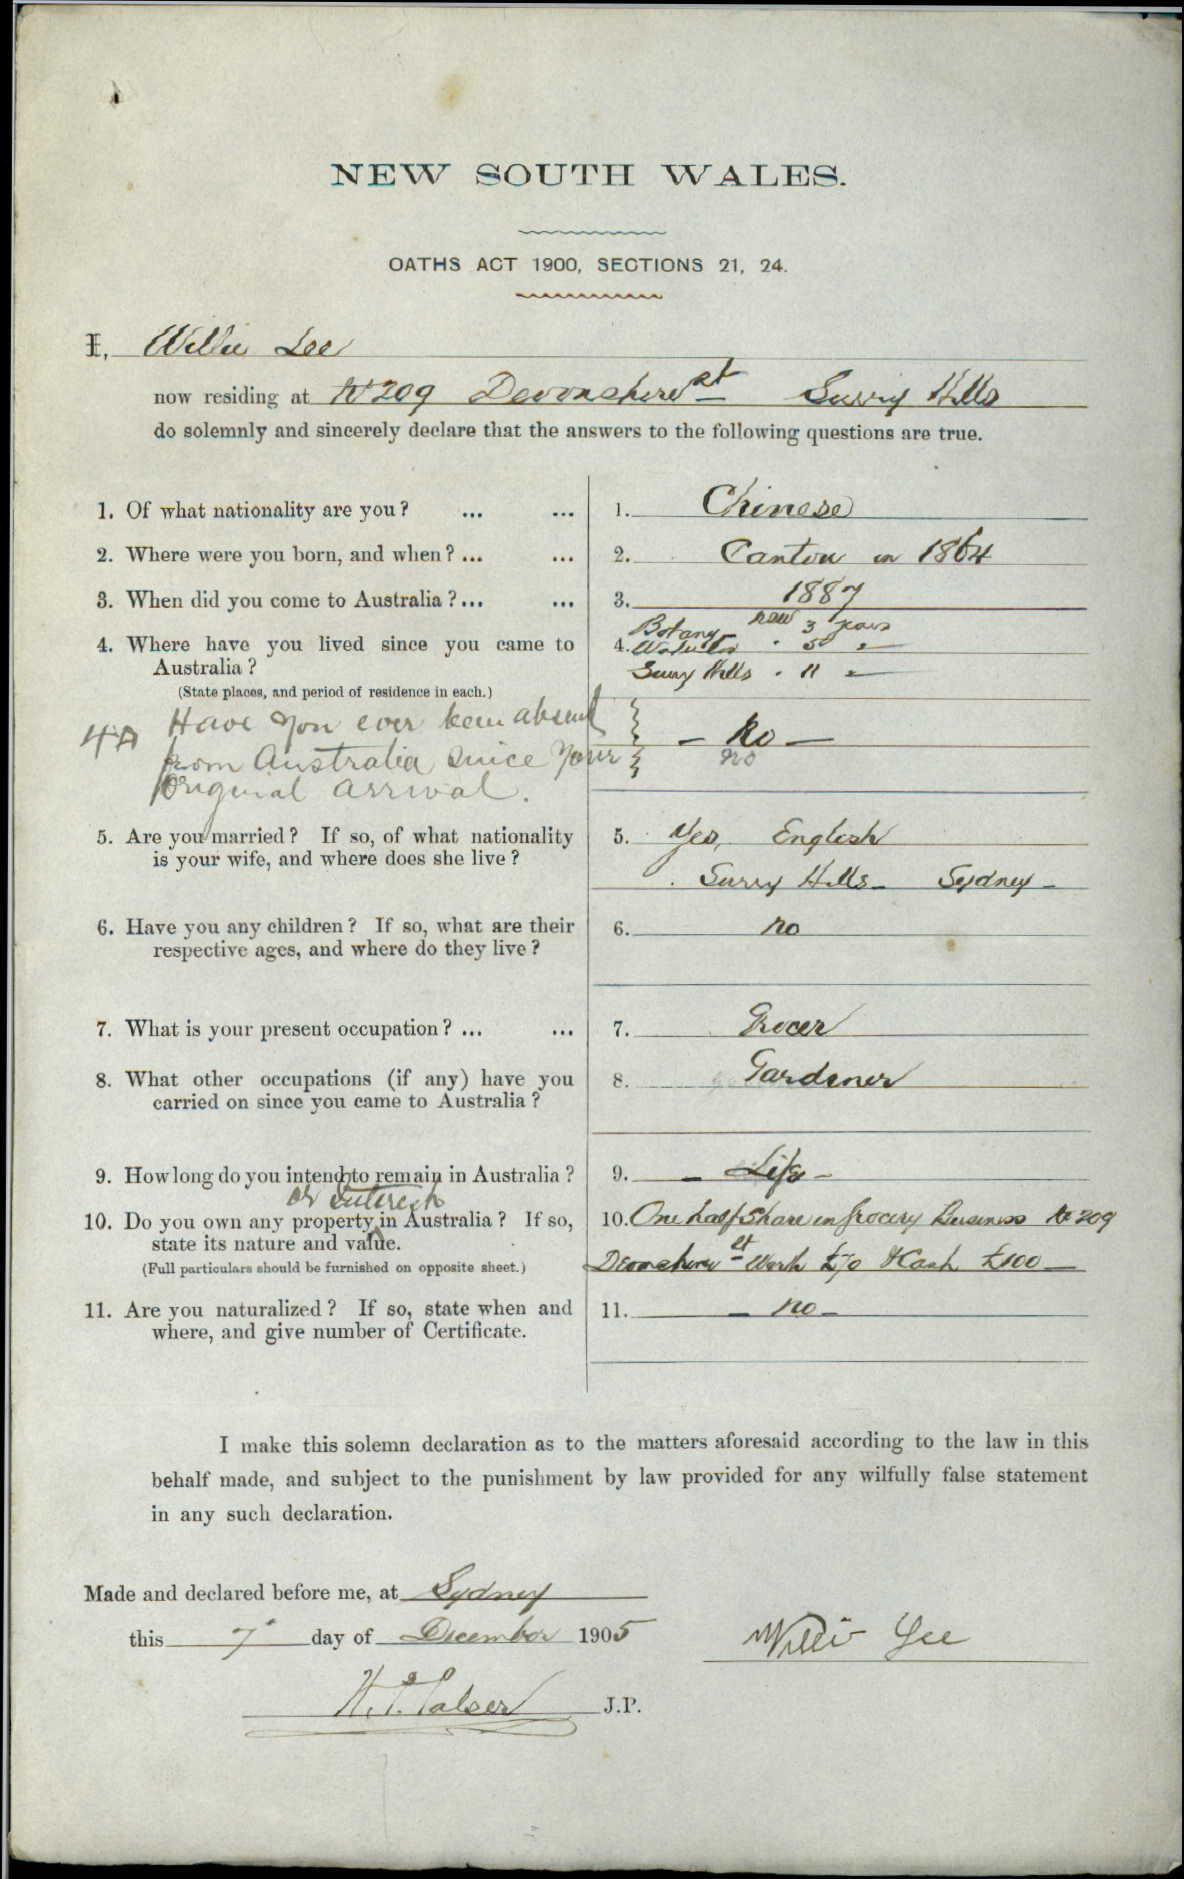 NEW SOUTH WALES.
OATHS ACT 1900, SECTIONS 21, 24.
I, Willie Lee
now residing at No 209 Devonshire St Surry Hills
do solemnly and sincerely declare that the answers to the following questions are true.
1. Of what nationality are you? ... ... 1. Chinese
2. Where were you born, and when? ... ... 2. Canton in 1864
3. When did you come to Australia? ... ... 3. 1887
Botany NSW 3 years
4. Where have you lived since you came to 4. Waterloo " 5 "
Australia? Surry Hills " 11 "
(State places, and period of residence in each.)
4A Have you ever been absent
from Australia since your — No —
original arrival. no
5. Are you married? If so, of what nationality 5. Yes, English
is your wife, and where does she live? Surry Hills - Sydney -
6. Have you any children? If so, what are their 6. no
respective ages, and where do they live?
7. What is your present occupation? ... ... 7. Grocer
8. What other occupations (if any) have you 8. Gardener
carried on since you came to Australia?
9. How long do you intend to remain in Australia? 9. — Life -
or interest
10. Do you own any property in Australia? If so, 10. One half share in Grocery Business No 209
state its nature and value. Devonshire St Worth £70 & Cash £100 —
(Full particulars should be furnished on opposite sheet.)
11. Are you naturalized? If so, state when and 11. — no -
where, and give number of Certificate.
I make this solemn declaration as to the matters aforesaid according to the law in this
behalf made, and subject to the punishment by law provided for any wilfully false statement
in any such declaration.
Made and declared before me, at Sydney
this 7 day of December 1905 Willie Lee
J.P.